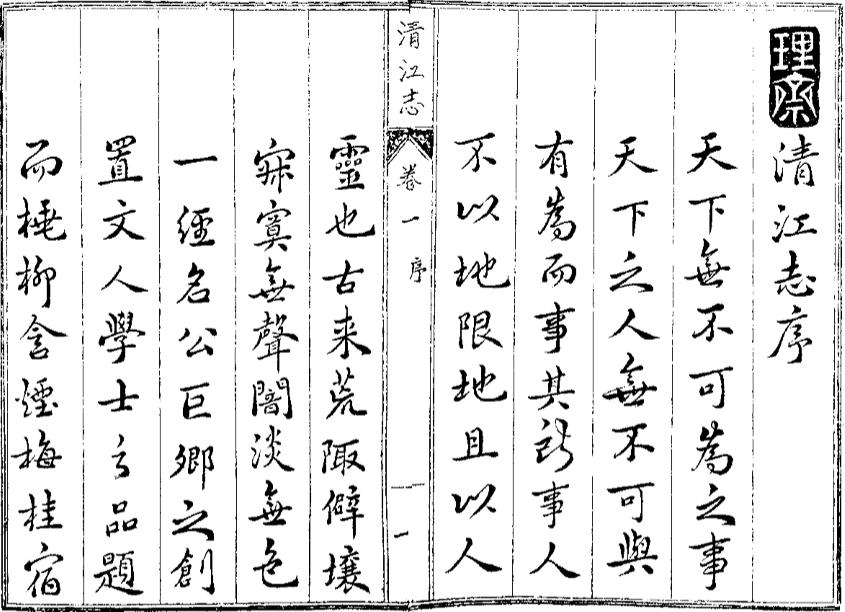 清江志序
天下無不可為之事
天下之人無不可與
有為而事其所事人
不以地限地且以人
清江志
卷一
序
一
靈也古来荒陬僻壤
寂寞無聲闇淡無色
一經名公巨卿之創
置文人學士之品題
而柳含煙梅桂宿